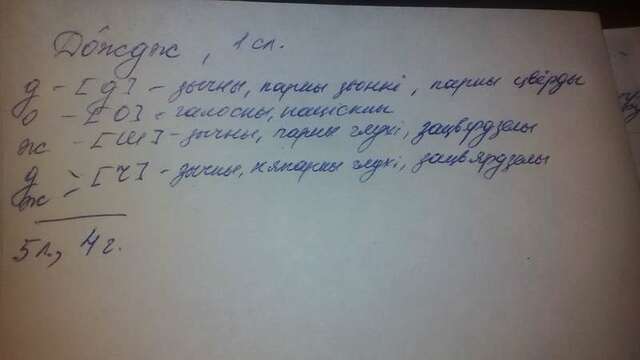 До́ждж, 1 сл.
д - [д] - зычны, парны звонкі, парны цвёрды
о - [о] - галосны, націскны
ж - [ш] - зычны, парны глухі, зацвярдзелы
д
ж > [ч] - зычны, няпарны глухі, зацвярдзелы
5 л., 4 г.